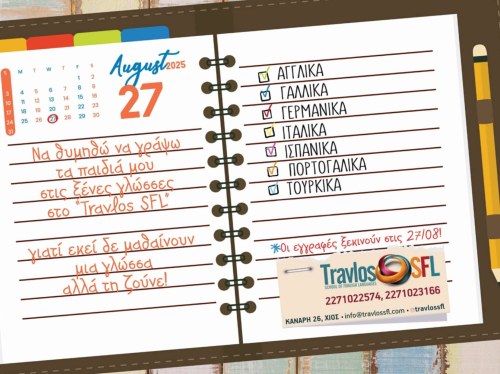 August 2025
27
Να θυμηθώ να γράψω
τα παιδιά μου
στις ξένες γλώσσες
στο "Travlos SFL"
γιατί εκεί δε μαθαίνουν
μια γλώσσα
αλλά τη ζούνε!
ΑΓΓΛΙΚΑ
ΓΑΛΛΙΚΑ
ΓΕΡΜΑΝΙΚΑ
ΙΤΑΛΙΚΑ
ΙΣΠΑΝΙΚΑ
ΠΟΡΤΟΓΑΛΙΚΑ
ΤΟΥΡΚΙΚΑ
*Οι εγγραφές ξεκινούν στις 27/08!
Travlos SFL
SCHOOL OF FOREIGN LANGUAGES
2271022574, 2271023166
ΚΑΝΑΡΗ 26, ΧΙΟΣ • info@travlossfl.com • travlossfl